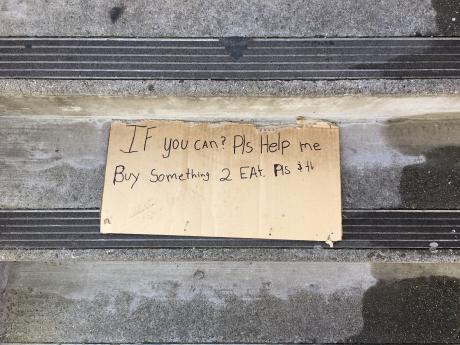 IF you can? Pls Help me
Buy Something 2 EAt. Pls